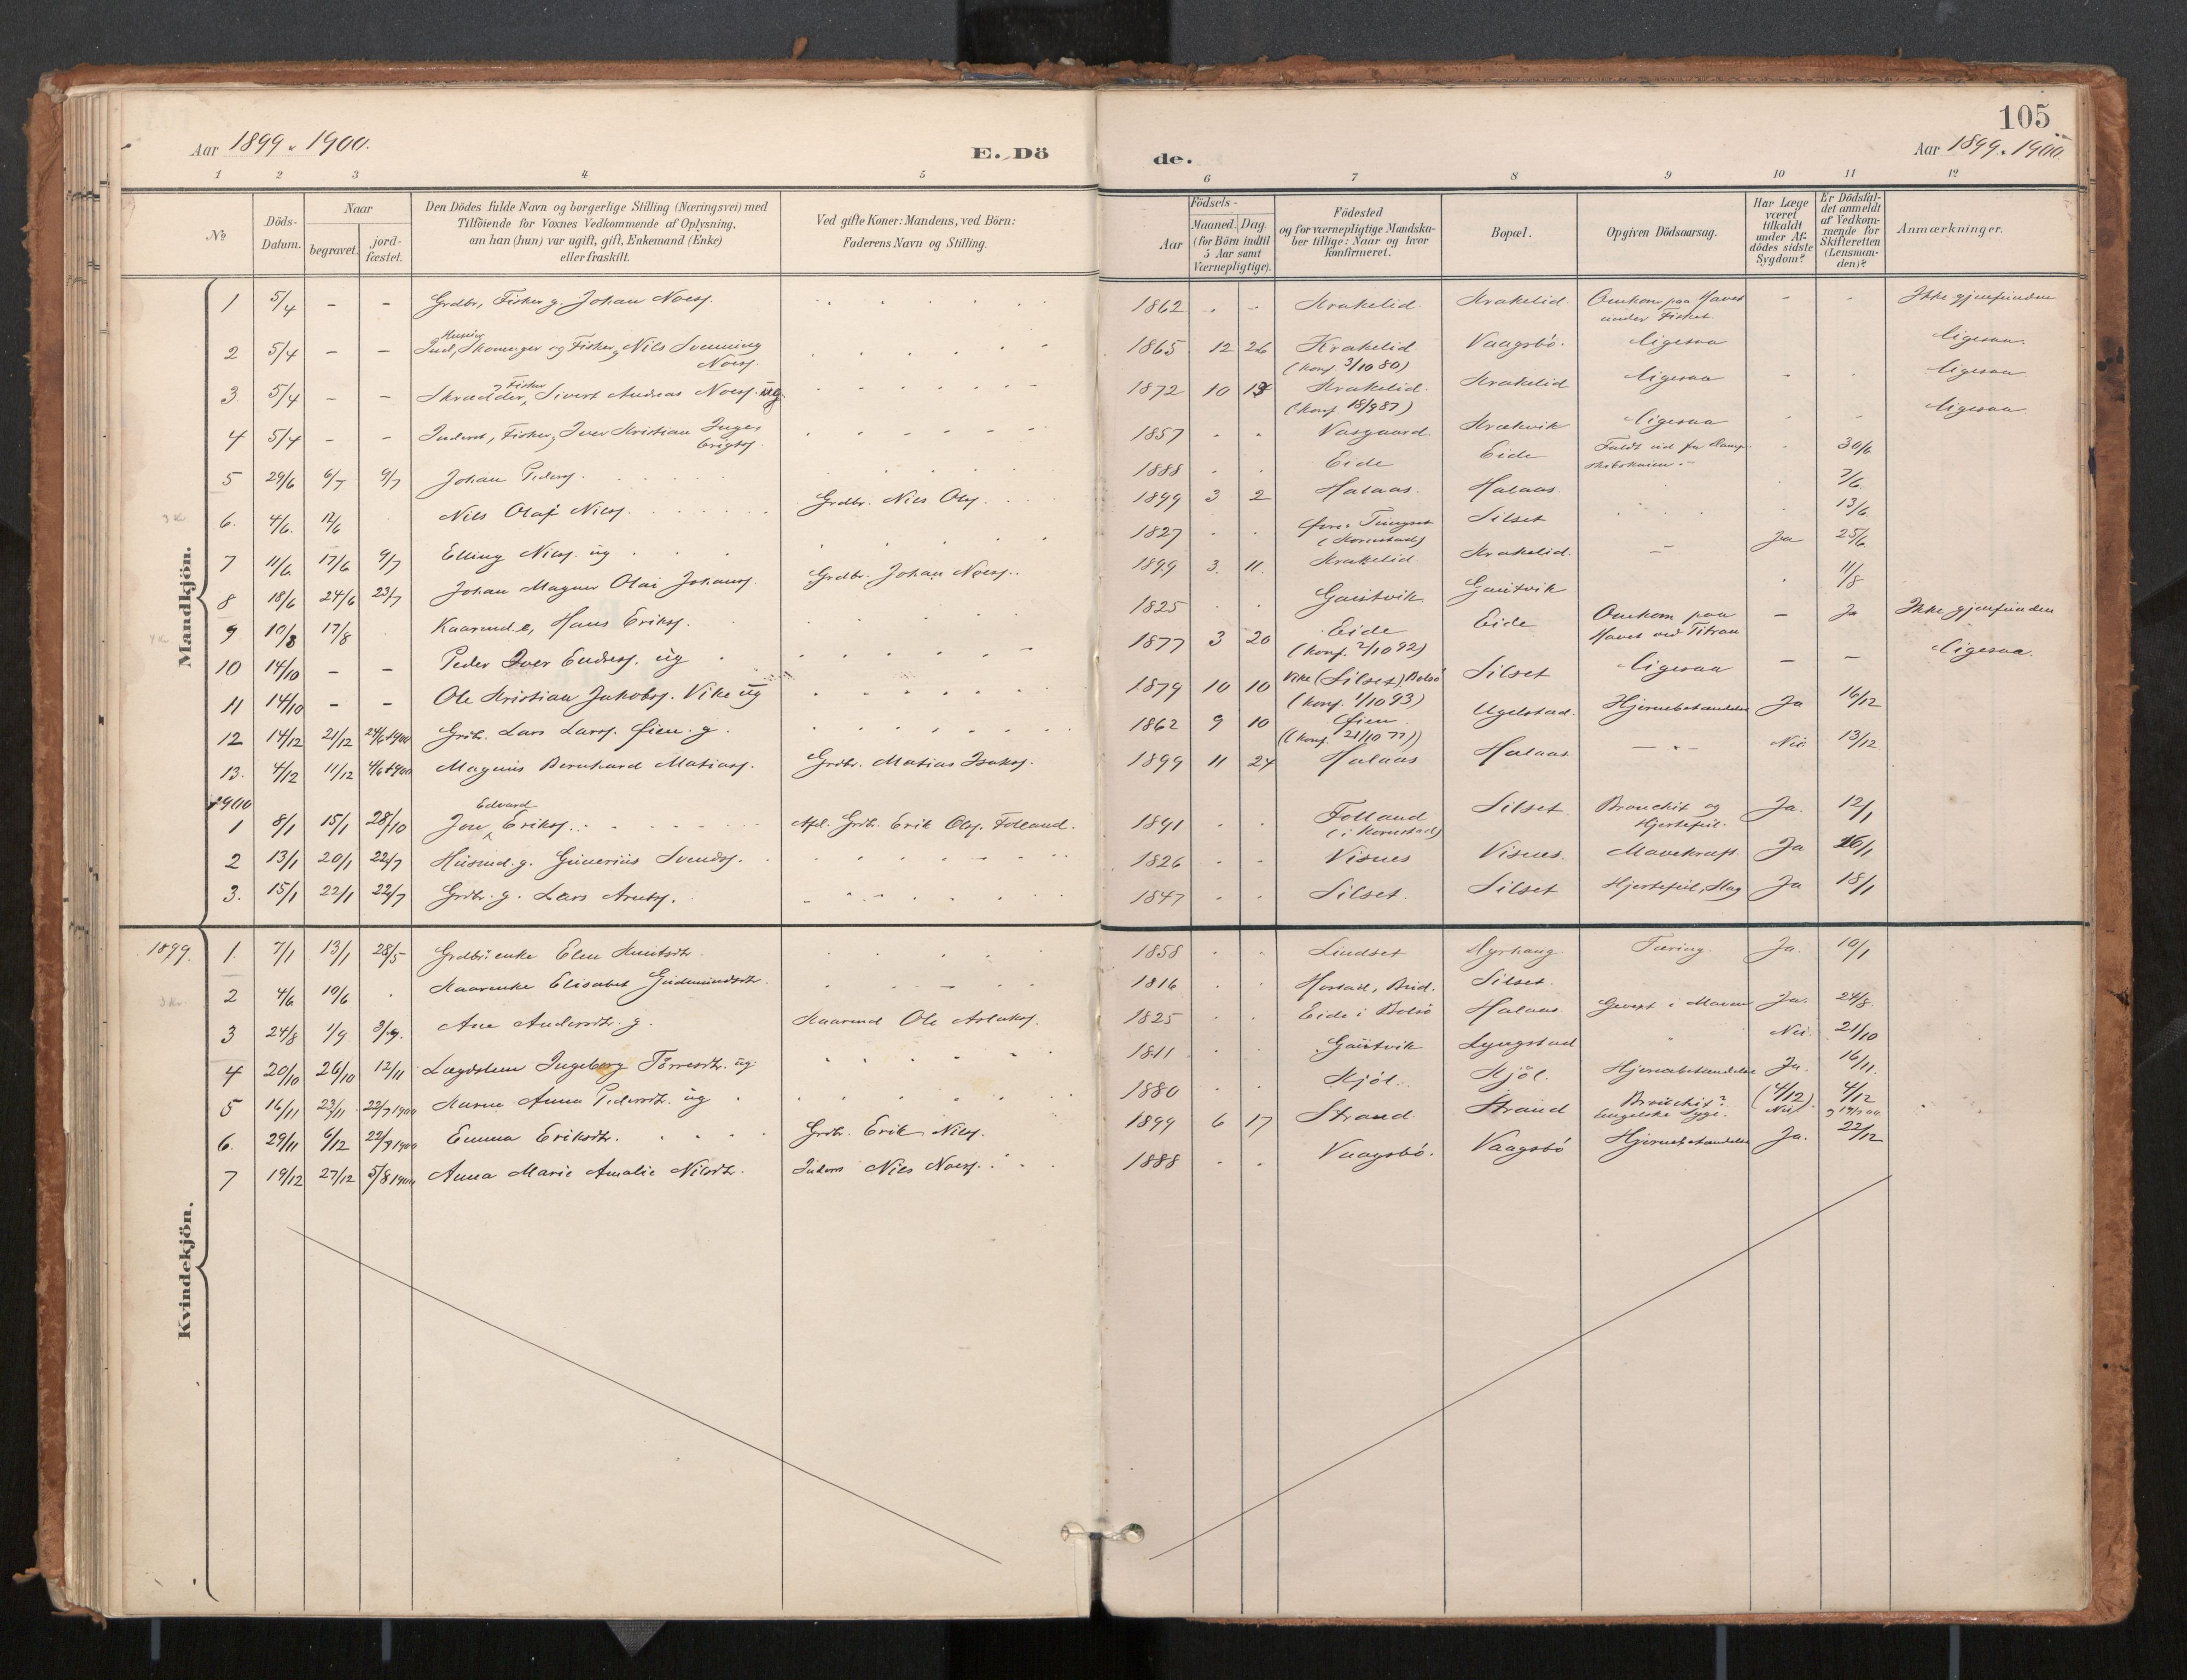 105
Aar 1899 - 1900.
E. Dö
de.
Aar 1899 - 1900.
1 2 3 4 5 6 7 8 9 10 11 12
No
Döds-Datum.
Naar
begravet.
jord-fæstet.
Den Dödes fulde Navn og borgerlige Stilling (Næringsvei) med
Tilföiende for Voxnes Vedkommende af Oplysning,
om han (hun) var ugift, gift, Enkemand (Enke)
eller fraskilt.
Ved gifte Koner: Mandens, ved Börn:
Faderens Navn og Stilling.
Födsels-
Aar
Maaned. Dag.
(for Börn indtil
5 Aar samt
Værnepligtige).
Födested
og for værnepligtige Mandska-
ber tillige: Naar og hvor
konfirmeret.
Bopæl.
Opgiven Dödsaarsag.
Har Læge
været
tilkaldt
under Af-
dödes sidste
Sygdom?
Er Dödsfal-
det anmeldt
af Vedkom-
mende for
Skifteretten
(Lensman-
den)?
Anmærkninger.
Mandkjön.
1 5/4 - - Grdbr, Fisker g. Johan Noesf. 1862 Krakelid Krakelid Omkom paa Havet under Fisket. - - Ikke gjenfunden
2 5/4 - - Skomager og Fisker Nils Svenning Noesf. 1865 12 26 Krakelid (konf. 3/10 80) Vaagsbö. ligesaa ligesaa.
3 5/4 - - Skrædder, Fisker Sivert Andreas Noesf. ug. 1872 10 Krakelid (konf. 18/9 87) Krakelid ligesaa ligesaa
4 5/4 - - Inderst, Fisker, Iver Kristian 1857 Vasgaard Krækvik ligesaa ligesaa
5 29/6 6/7 9/7 Johan Pedersf. 1888 Eide Eide Faldt ud fra 30/6
6. 4/6. 12/6 Nils Olaf Nilsf. Grdbr. Nils Olsf. 1899 3 2 Halaas Halaas 7/6
7 11/6 17/6 9/7 Elling Nilsf. ug 1827 (Kornstad) Silset 13/6
8 18/6 24/6 23/7 Johan Magnus Olai Johansf. Grdbr. Johan Noesf. 1899 3. 11. Krakelid Krakelid. Ja 25/6
9 10/8 17/8 Kaarmd. e, Hans Eriksf. 1825 Gautvik Gautvik 11/8
10 14/10 - - Peder Iver Endresf. ug 1877 3 20 Eide (konf. 2/10 92) Eide Omkom paa Havet ved Titran - Ja Ikke gjenfunden
11 14/10 - - Ole Kristian Jakobsf. Vike ug 1879 10 10 Vike (Silset) Bolsö (konf. 1/10 93) Silset ligesaa - - ligesaa.
12 14/12 21/12 24/6 1900 Grdbr. Lars Larsf. Öien. g. 1862 9 10 Öien (konf. 21/10 77) Ugelstad. Hjernebetændelse Ja 16/12
13. 4/12 11/12 4/6 1900 Magnus Bernhard Matiasf. Grdbr. Matias Isaksf. 1899 11 24 Halaas Halaas Nei 13/12
1900
1 8/1 15/1 28/10 Jon Edvard Eriksf. Grdbr. Erik Olsf. Folland. 1891 Folland (i Kornstad) Silset Bronchit og Hjertefeil. Ja. 12/1
2 13/1 20/1 22/7 Husmd. g. Gunerius Svendsf. 1826 Visnes Visnes. Mavekræft. Ja 16/1
3. 15/1 22/1 22/7 Grdbr. g. Lars Arntsf. 1847 Silset. Silset Hjertefeil, Slag Ja 18/1
Kvindekjön.
1899.
1. 7/1 13/1 28/5 Grdbr. enke Elen Knutsdtr. 1858 Lindset Myrhaug Tæring. Ja. 10/1
2 4/6 10/6 Kaarenke Elisabet Gudmundsdtr. 1816 Horstad, Bud. Silset.
3 24/8 1/9 3/9. Ane Andersdtr. g. Kaarmd Ole Aslaksf. 1825 Eide i Bolsö Halaas Gevext i Maven Ja. 24/8.
4 20/10 26/10 12/11 Lægdslem Ingeborg Törresdtr. ug. 1811 Gautvik Lyngstad Nei. 21/10
5 16/11 23/11 22/7 1900 Karen Anna Pedersdtr. ug 1880 Kjöl. Kjöl. Hjernebetændelse Ja. 16/11
6. 29/11 6/12 22/7 1900 Emma Eriksdtr. Grdbr. Erik Nilsf. 1899 6 17 Strand Strand Bronchit? Engelske Syge. (4/12) Nei 4/12
7 19/12 27/12 5/8 1900 Anna Marie Amalie Nilsdtr. Inderst Nils Noesf. 1888 Vaagsbö. Vaagsbö Hjernebetændelse Ja. 22/12